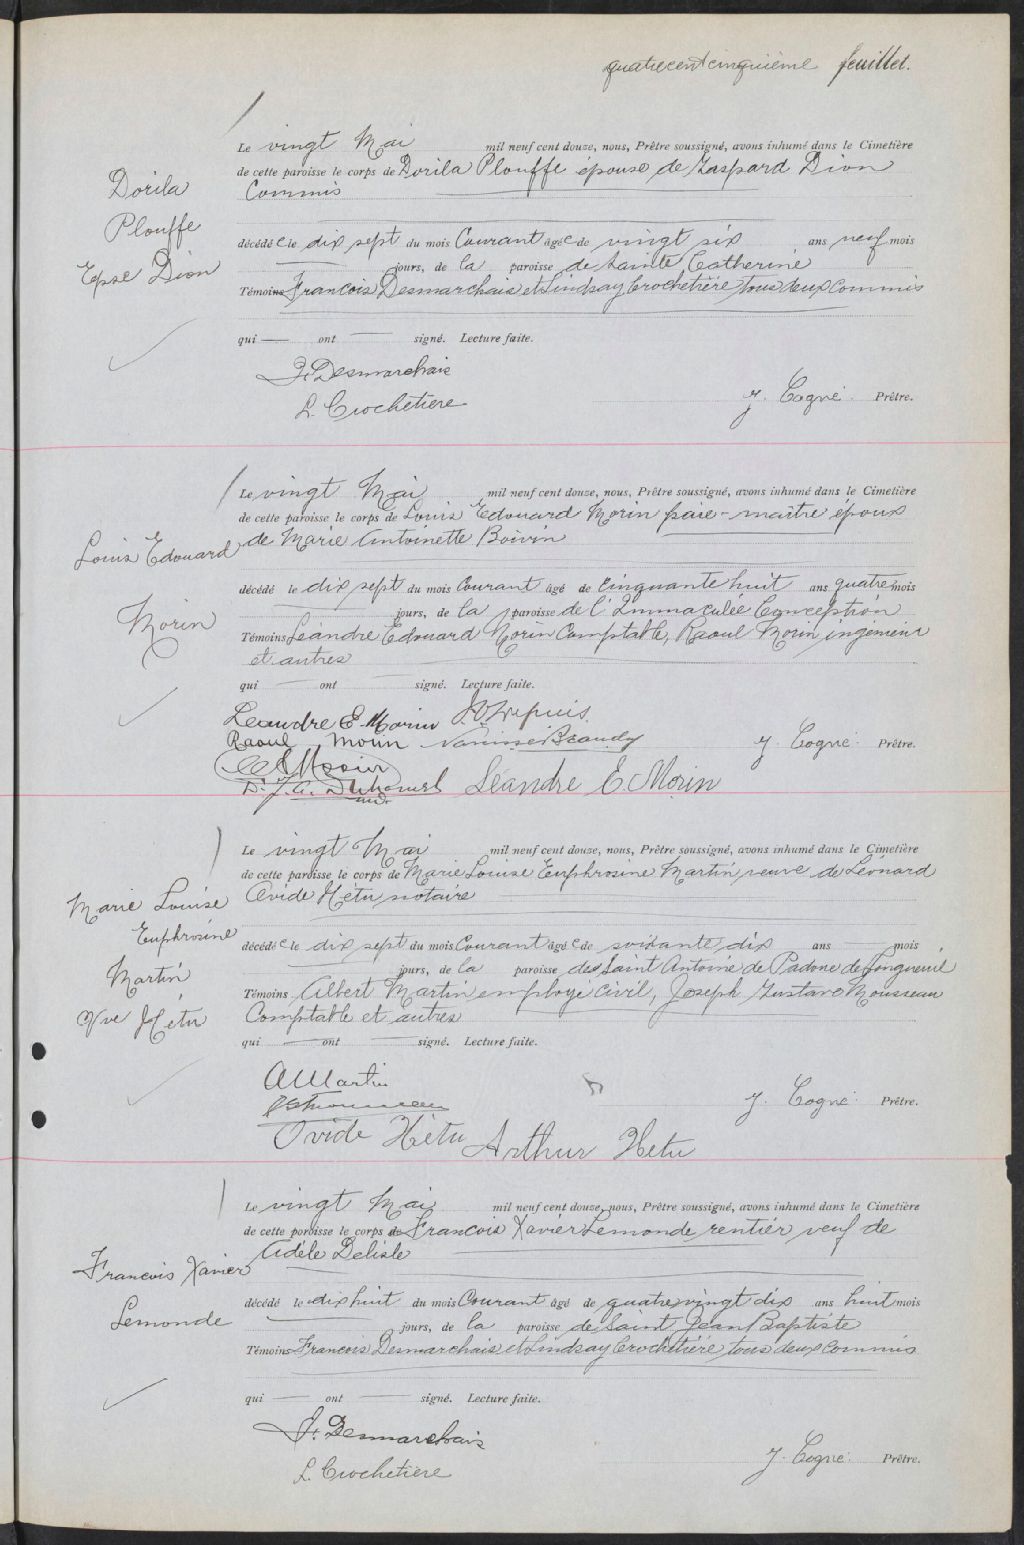 quatre cent cinquième feuillet.
Le vingt Mai mil neuf cent douze, nous, Prêtre soussigné, avons inhumé dans le Cimetière
de cette paroisse le corps de Dorila Plouffe épouse de Gaspard Dion
Commis
Dorila
Plouffe
Epse Dion
décédée le dix sept du mois Courant âgée de vingt six ans neuf mois
jours, de la paroisse de Sainte Catherine
Témoins François Desmarchais et Lindsay Crochetière tous deux commis
qui ont signé. Lecture faite.
F. Desmarchais
L. Crochetiere
J. Cogné Prêtre.
Le vingt Mai mil neuf cent douze, nous, Prêtre soussigné, avons inhumé dans le Cimetière
de cette paroisse le corps de Louis Edouard Morin paie-maître époux
de Marie Antoinette Boivin
Louis Edouard
Morin
décédé le dix sept du mois Courant âgé de cinquante huit ans quatre mois
jours, de la paroisse de l'Immaculée Conception
Témoins Léandre Edouard Morin Comptable, Raoul Morin ingénieur
et autres
qui ont signé. Lecture faite.
Leandre E. Morin
Raoul Morin
J. Cogné Prêtre.
Dr J. A. Duhamel
Léandre E. Morin
Le vingt Mai mil neuf cent douze, nous, Prêtre soussigné, avons inhumé dans le Cimetière
de cette paroisse le corps de Marie Louise Euphrosine Martin veuve de Léonard
Ovide Hétu notaire
Marie Louise
Euphrosine
Martin
Vve Hétu
décédée le dix sept du mois Courant âgée de soixante dix ans mois
jours, de la paroisse de Saint Antoine de Padoue de Longueuil
Témoins Albert Martin employé civil, Joseph Gustave Mousseau
Comptable et autres
qui ont signé. Lecture faite.
A Martin
J. Cogné Prêtre.
Ovide Hétu Arthur Hetu
Le vingt Mai mil neuf cent douze, nous, Prêtre soussigné, avons inhumé dans le Cimetière
de cette paroisse le corps de François Xavier Lemonde rentier veuf de
Adèle Delisle
François Xavier
Lemonde
décédé le dix huit du mois Courant âgé de quatre vingt dix ans huit mois
jours, de la paroisse de Saint Jean Baptiste
Témoins François Desmarchais et Lindsay Crochetière tous deux commis
qui ont signé. Lecture faite.
F. Desmarchais
L. Crochetiere
J. Cogné Prêtre.